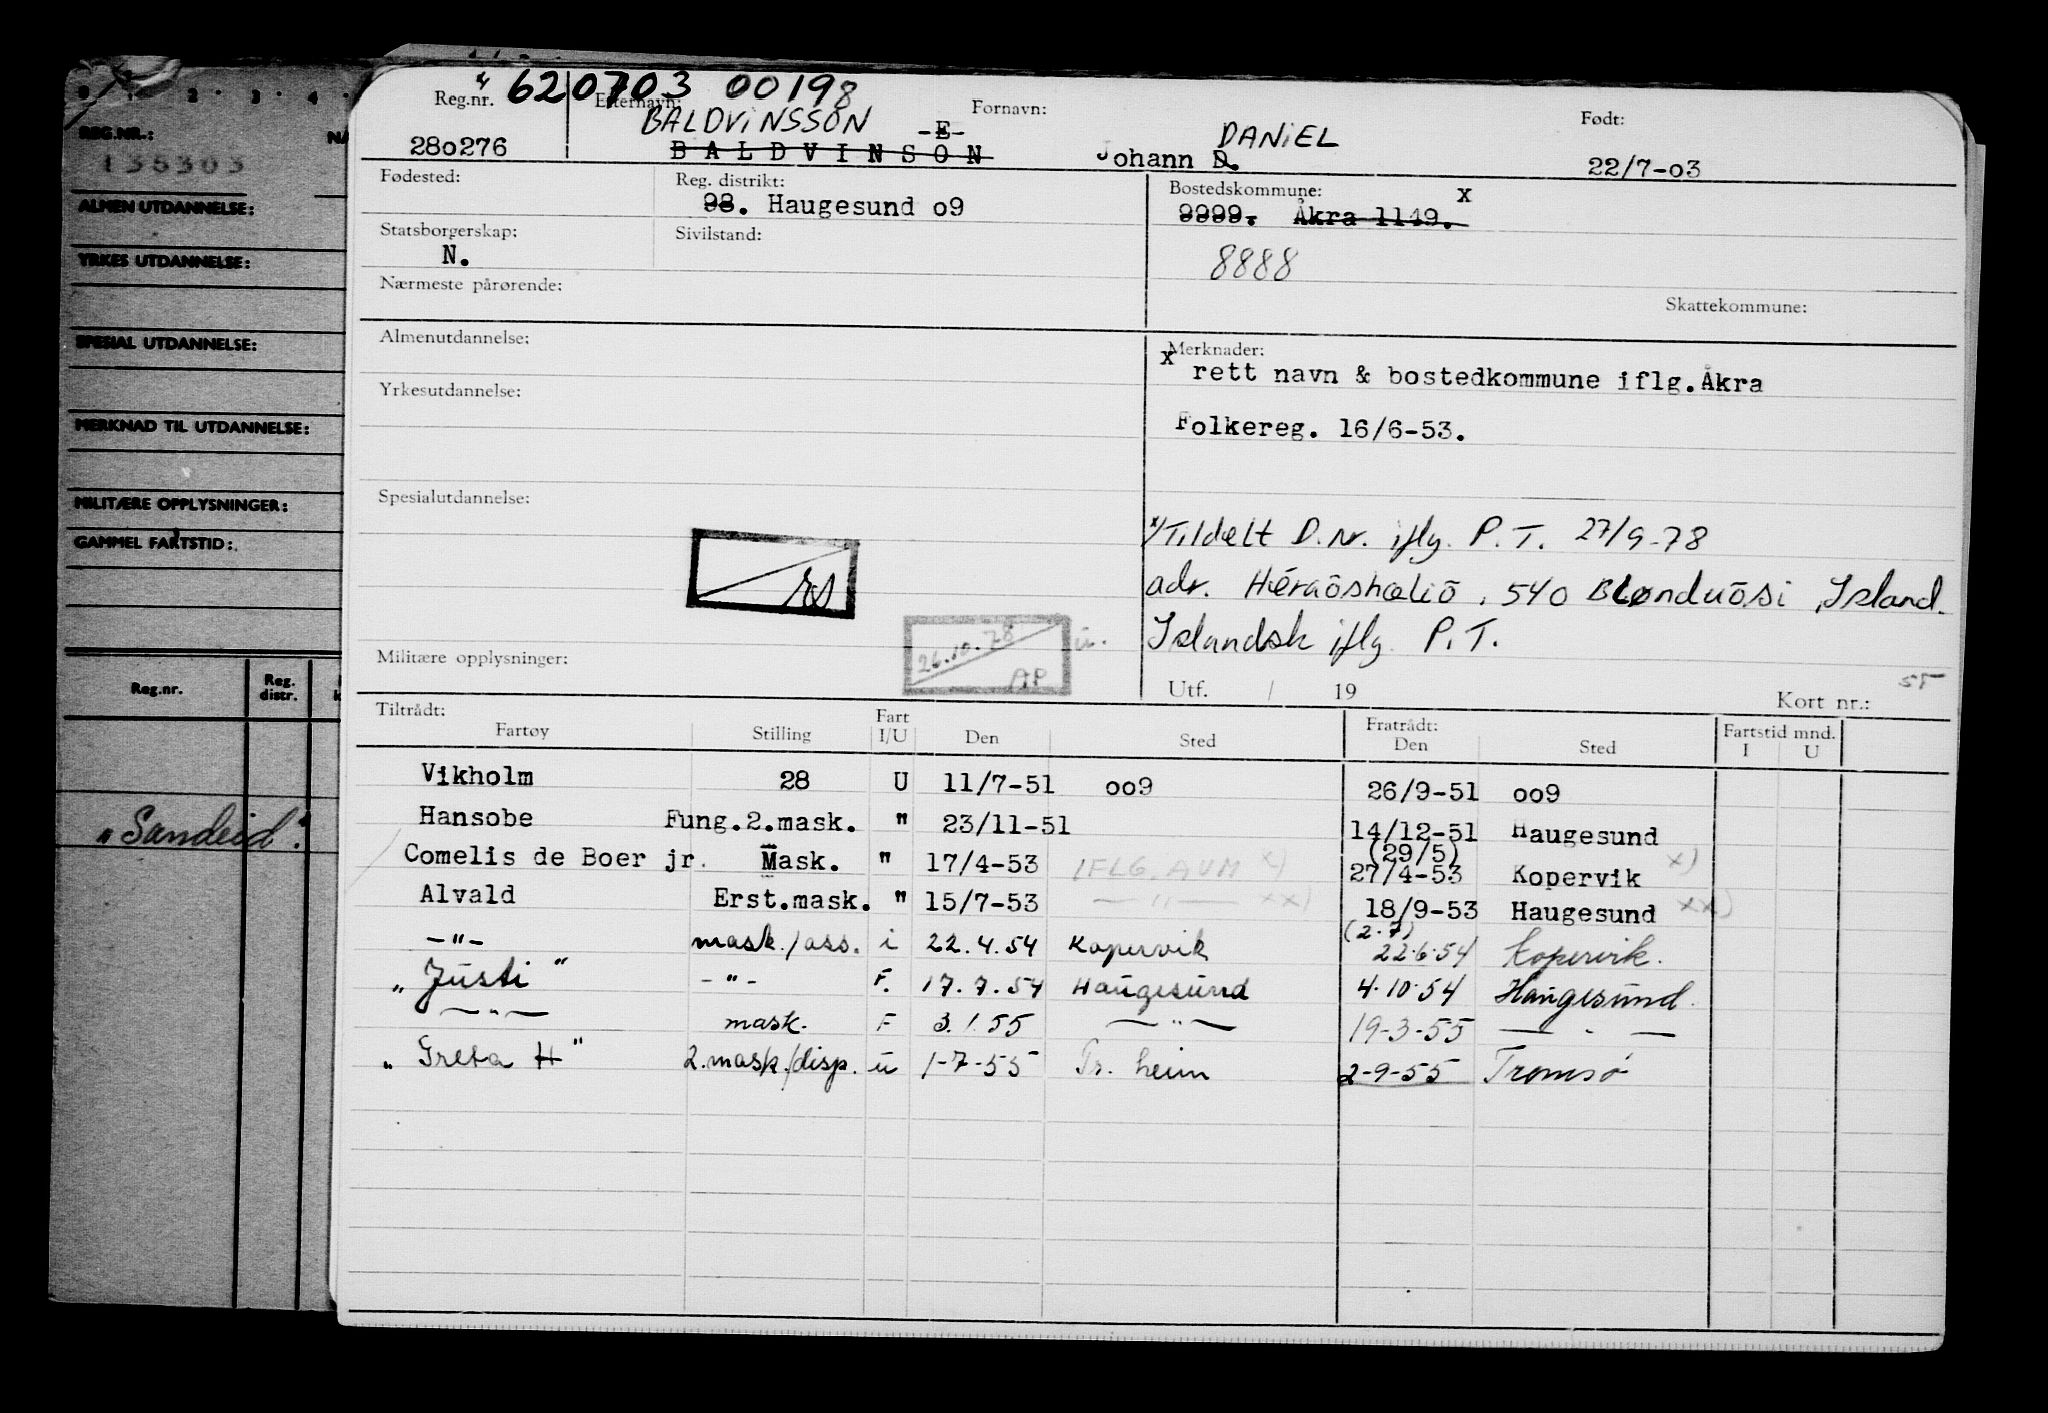 REG.NR.:
135303
ALMEN UTDANNELSE:
YRKES UTDANNELSE:
SPESIAL UTDANNELSE:
MERKNAD TIL UTDANNELSE:
MILITÆRE OPPLYSNINGER:
GAMMEL FARTSTID:
Reg.nr. Reg. distr.
"Sandeid".
x) 620703 00198
Reg.nr. Etternavn: Fornavn: Født:
BALDVINSSON -E- DANIEL
280276 BALDVINSON Johann D. 22/7-03
Fødested: Reg. distrikt: Bostedskommune: x
98. Haugesund o9 9999. Åkra 1149.
Statsborgerskap: Sivilstand:
N. 8888
Nærmeste pårørende: Skattekommune:
Almenutdannelse: Merknader:
x rett navn & bostedkommune iflg. Åkra
Yrkesutdannelse:
Folkereg. 16/6-53.
Spesialutdannelse:
x) Tildelt D.nr. iflg. P.T. 27/9-78
adr. Héraðshælið, 540 Blønduósi, Island.
Islandsk iflg. P.T.
26.10.78 AP
Militære opplysninger:
Utf. / 19 Kort nr.: 55
Tiltrådt: Fratrådt: Fartstid mnd.
Fartøy Stilling Fart I/U Den Sted Den Sted I U
Vikholm 28 U 11/7-51 oo9 26/9-51 oo9
Hansobe Fung.2.mask. " 23/11-51 14/12-51 Haugesund
(29/5)
Comelis de Boer jr. Mask. " 17/4-53 IFLG. AVM x) 27/4-53 Kopervik x)
Alvald Erst.mask. " 15/7-53 —"— xx) 18/9-53 Haugesund xx)
(2.7)
-"- mask./ass. i 22.4.54 Kopervik 22.6.54 Kopervik.
"Justi" -"- F. 17.7.54 Haugesund 4.10.54 Haugesund.
—"— mask. F 3.1.55 —"— 19-3-55 —"—
"Greta H" 2.mask./disp. u 1-7-55 Tr.heim 2-9-55 Tromsø